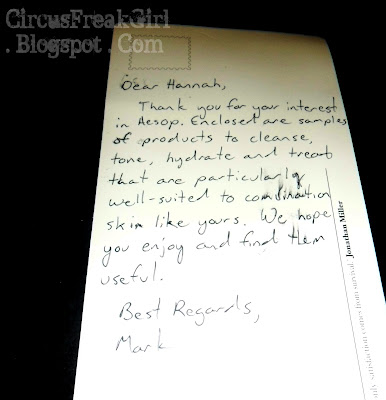 CircusFreakGirl
. Blogspot . Com
Dear Hannah,
Thank you for your interest
in Aesop. Enclosed are samples
of products to cleanse,
tone, hydrate and treat
that are particularly
well-suited to combination
skin like yours. We hope
you enjoy and find them
useful.
Best Regards,
Mark
satisfaction comes from survival. Jonathan Miller